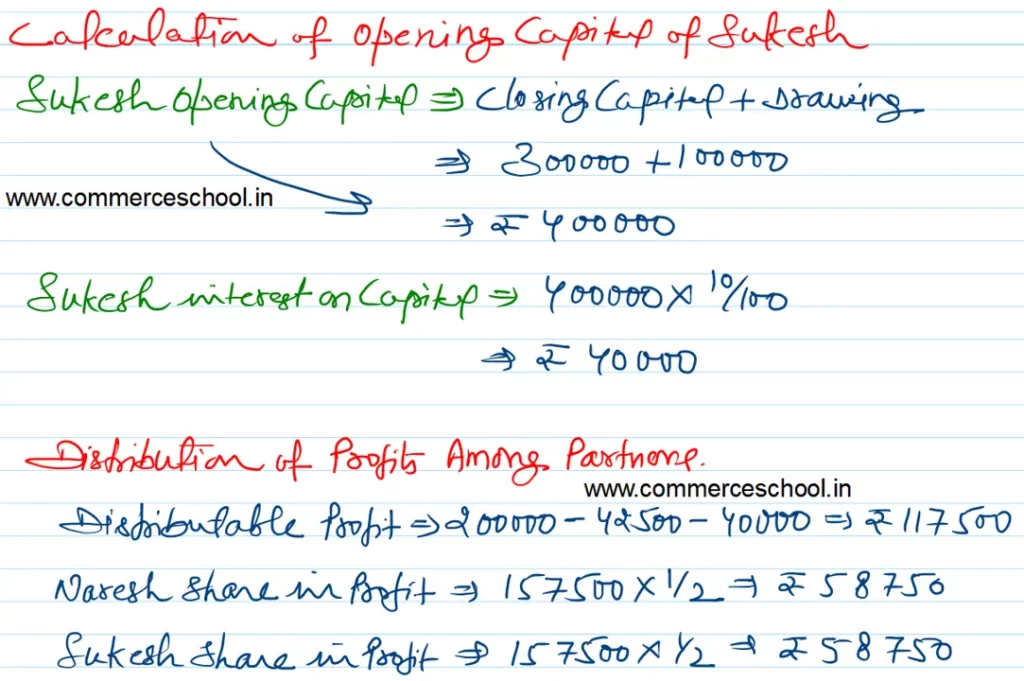 Calculation of Opening Capital of Sukesh
Sukesh Opening Capital ⇒ Closing Capital + Drawing
⇒ 300000 + 100000
www.commerceschool.in
⇒ ₹ 400000
Sukesh interest on Capital ⇒ 400000 × 10/100
⇒ ₹ 40000
Distribution of Profits Among Partners.
www.commerceschool.in
Distributable Profit ⇒ 200000 - 42500 - 40000 ⇒ ₹ 117500
Naresh Share in Profit ⇒ 157500 × 1/2 ⇒ ₹ 58750
Sukesh Share in Profit ⇒ 157500 × 1/2 ⇒ ₹ 58750